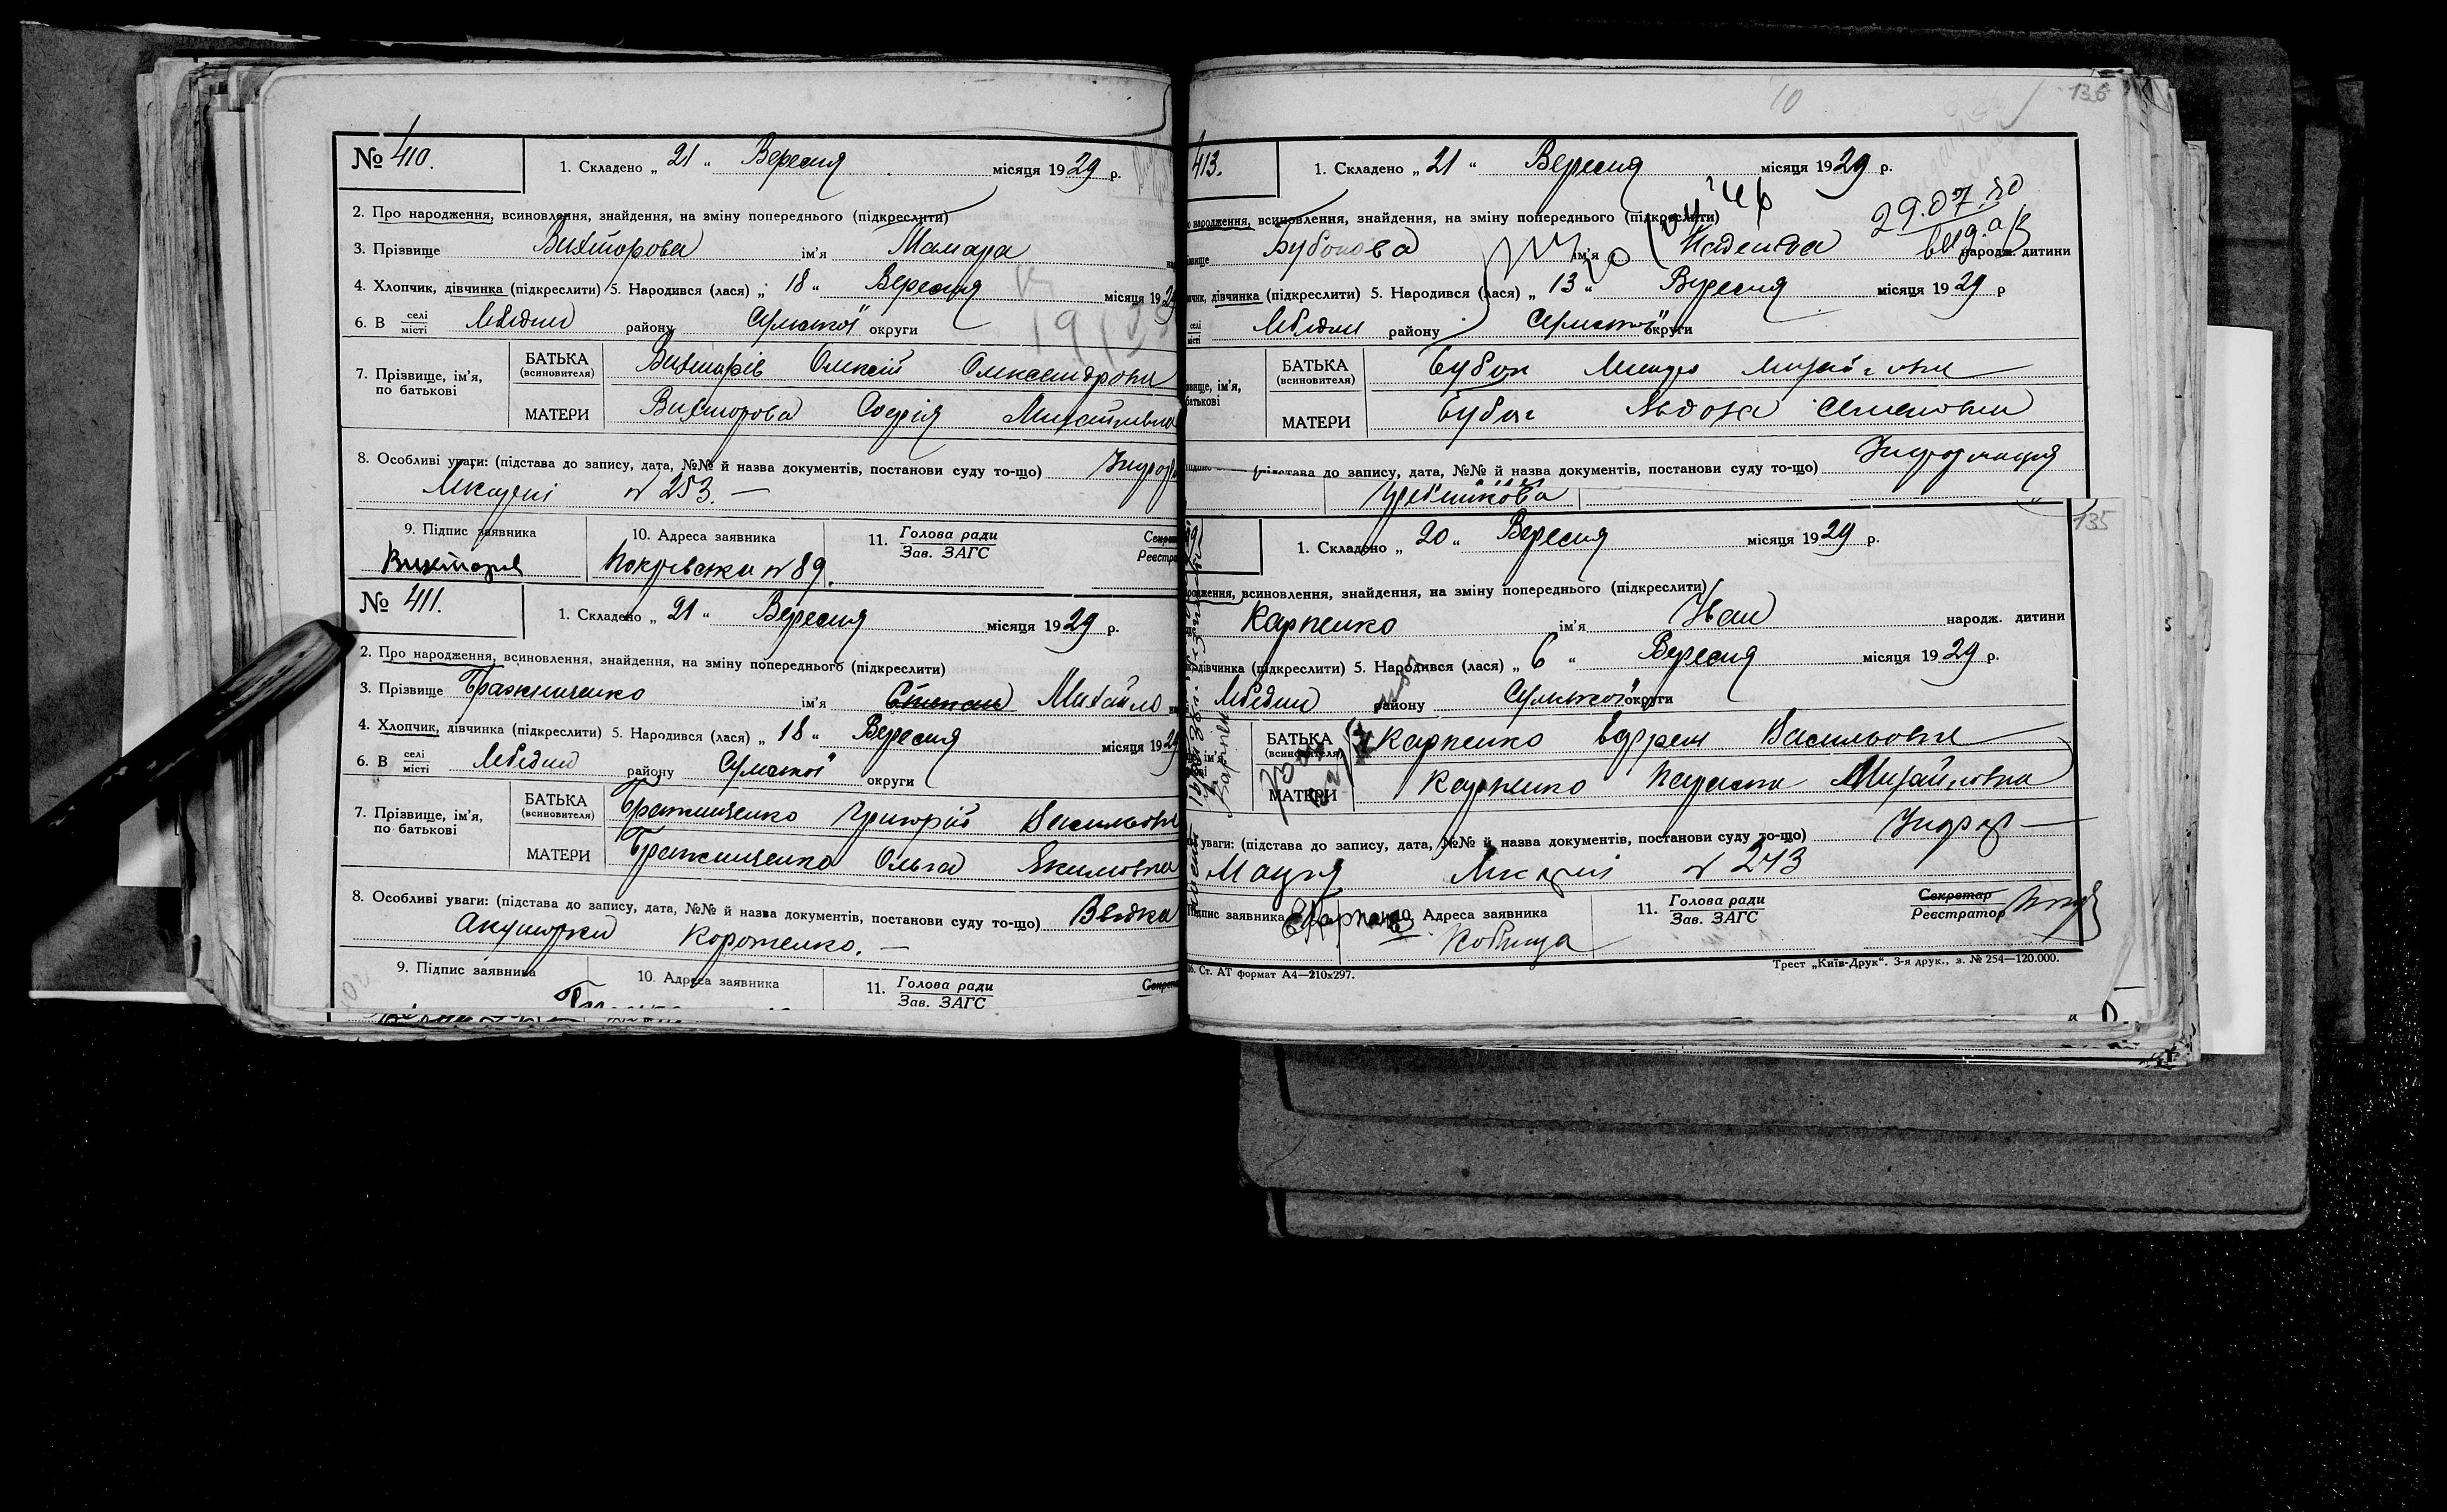 № 410.
1. Складено „ 21 “ Вересня місяця 1929 р.
2. Про народження, всиновлення, знайдення, на зміну попереднього (підкреслити)
3. Прізвище Вихторова ім'я Тамара
4. Хлопчик, дівчинка (підкреслити) 5. Народився (лася) „ 18 “ Вересня місяця 192
6. В селі місті Лебедин району Сумської округи
7. Прізвище, ім'я, по батькові
БАТЬКА (всиновителя) Вихторів Олексій Олександрович
МАТЕРИ Вихторова Софія Михайлівна
8. Особливі уваги: (підстава до запису, дата, №№ й назва документів, постанови суду то-що)
Лікарні № 253. —
9. Підпис заявника
10. Адреса заявника
11. Голова ради
Зав. ЗАГС
Покрівська № 89.
№ 411.
1. Складено „ 21 “ Вересня місяця 1929 р.
2. Про народження, всиновлення, знайдення, на зміну попереднього (підкреслити)
3. Прізвище Бражниченко ім'я Степан Михайло
4. Хлопчик, дівчинка (підкреслити) 5. Народився (лася) „ 18 “ Вересня місяця 1929
6. В селі місті Лебедин району Сумської округи
7. Прізвище, ім'я, по батькові
БАТЬКА (всиновителя) Бражниченко Григорій Васильович
МАТЕРИ Бражниченко Ольга Якимовна
8. Особливі уваги: (підстава до запису, дата, №№ й назва документів, постанови суду то-що)
Акушорки Коротенко. —
9. Підпис заявника
10. Адреса заявника
11. Голова ради
Зав. ЗАГС
10
136
413.
1. Складено „ 21 “ Вересня місяця 1929 р.
народження, всиновлення, знайдення, на зміну попереднього (підкреслити)
29.07.80
Бубонова ім'я Надежда народж. дитини
дівчинка (підкреслити) 5. Народився (лася) „ 13 “ Вересня місяця 1929 р
селі місті Лебедин району Сумської округи
БАТЬКА (всиновителя) Бубон
МАТЕРИ Бубон Явдоха Семеновна
(підстава до запису, дата, №№ й назва документів, постанови суду то-що) Информация
135
1. Складено „ 20 “ Вересня місяця 1929 р.
всиновлення, знайдення, на зміну попереднього (підкреслити)
Карпенко ім'я Іван народж. дитини
дівчинка (підкреслити) 5. Народився (лася) „ 6 “ Вересня місяця 1929 р.
Лебедин району Сумської округи
БАТЬКА (всиновителя) Карпенко Ефрем Васильович
МАТЕРИ Карпенко Параска Михайловна
уваги: (підстава до запису, дата, №№ й назва документів, постанови суду то-що)
Лікарні № 243
Підпис заявника
10. Адреса заявника
11. Голова ради
Зав. ЗАГС
Секретар
Реєстратор
Кобища
Ст. АТ формат А4—210х297.
Трест „Київ-Друк“. 3-я друк., з. № 254—120.000.